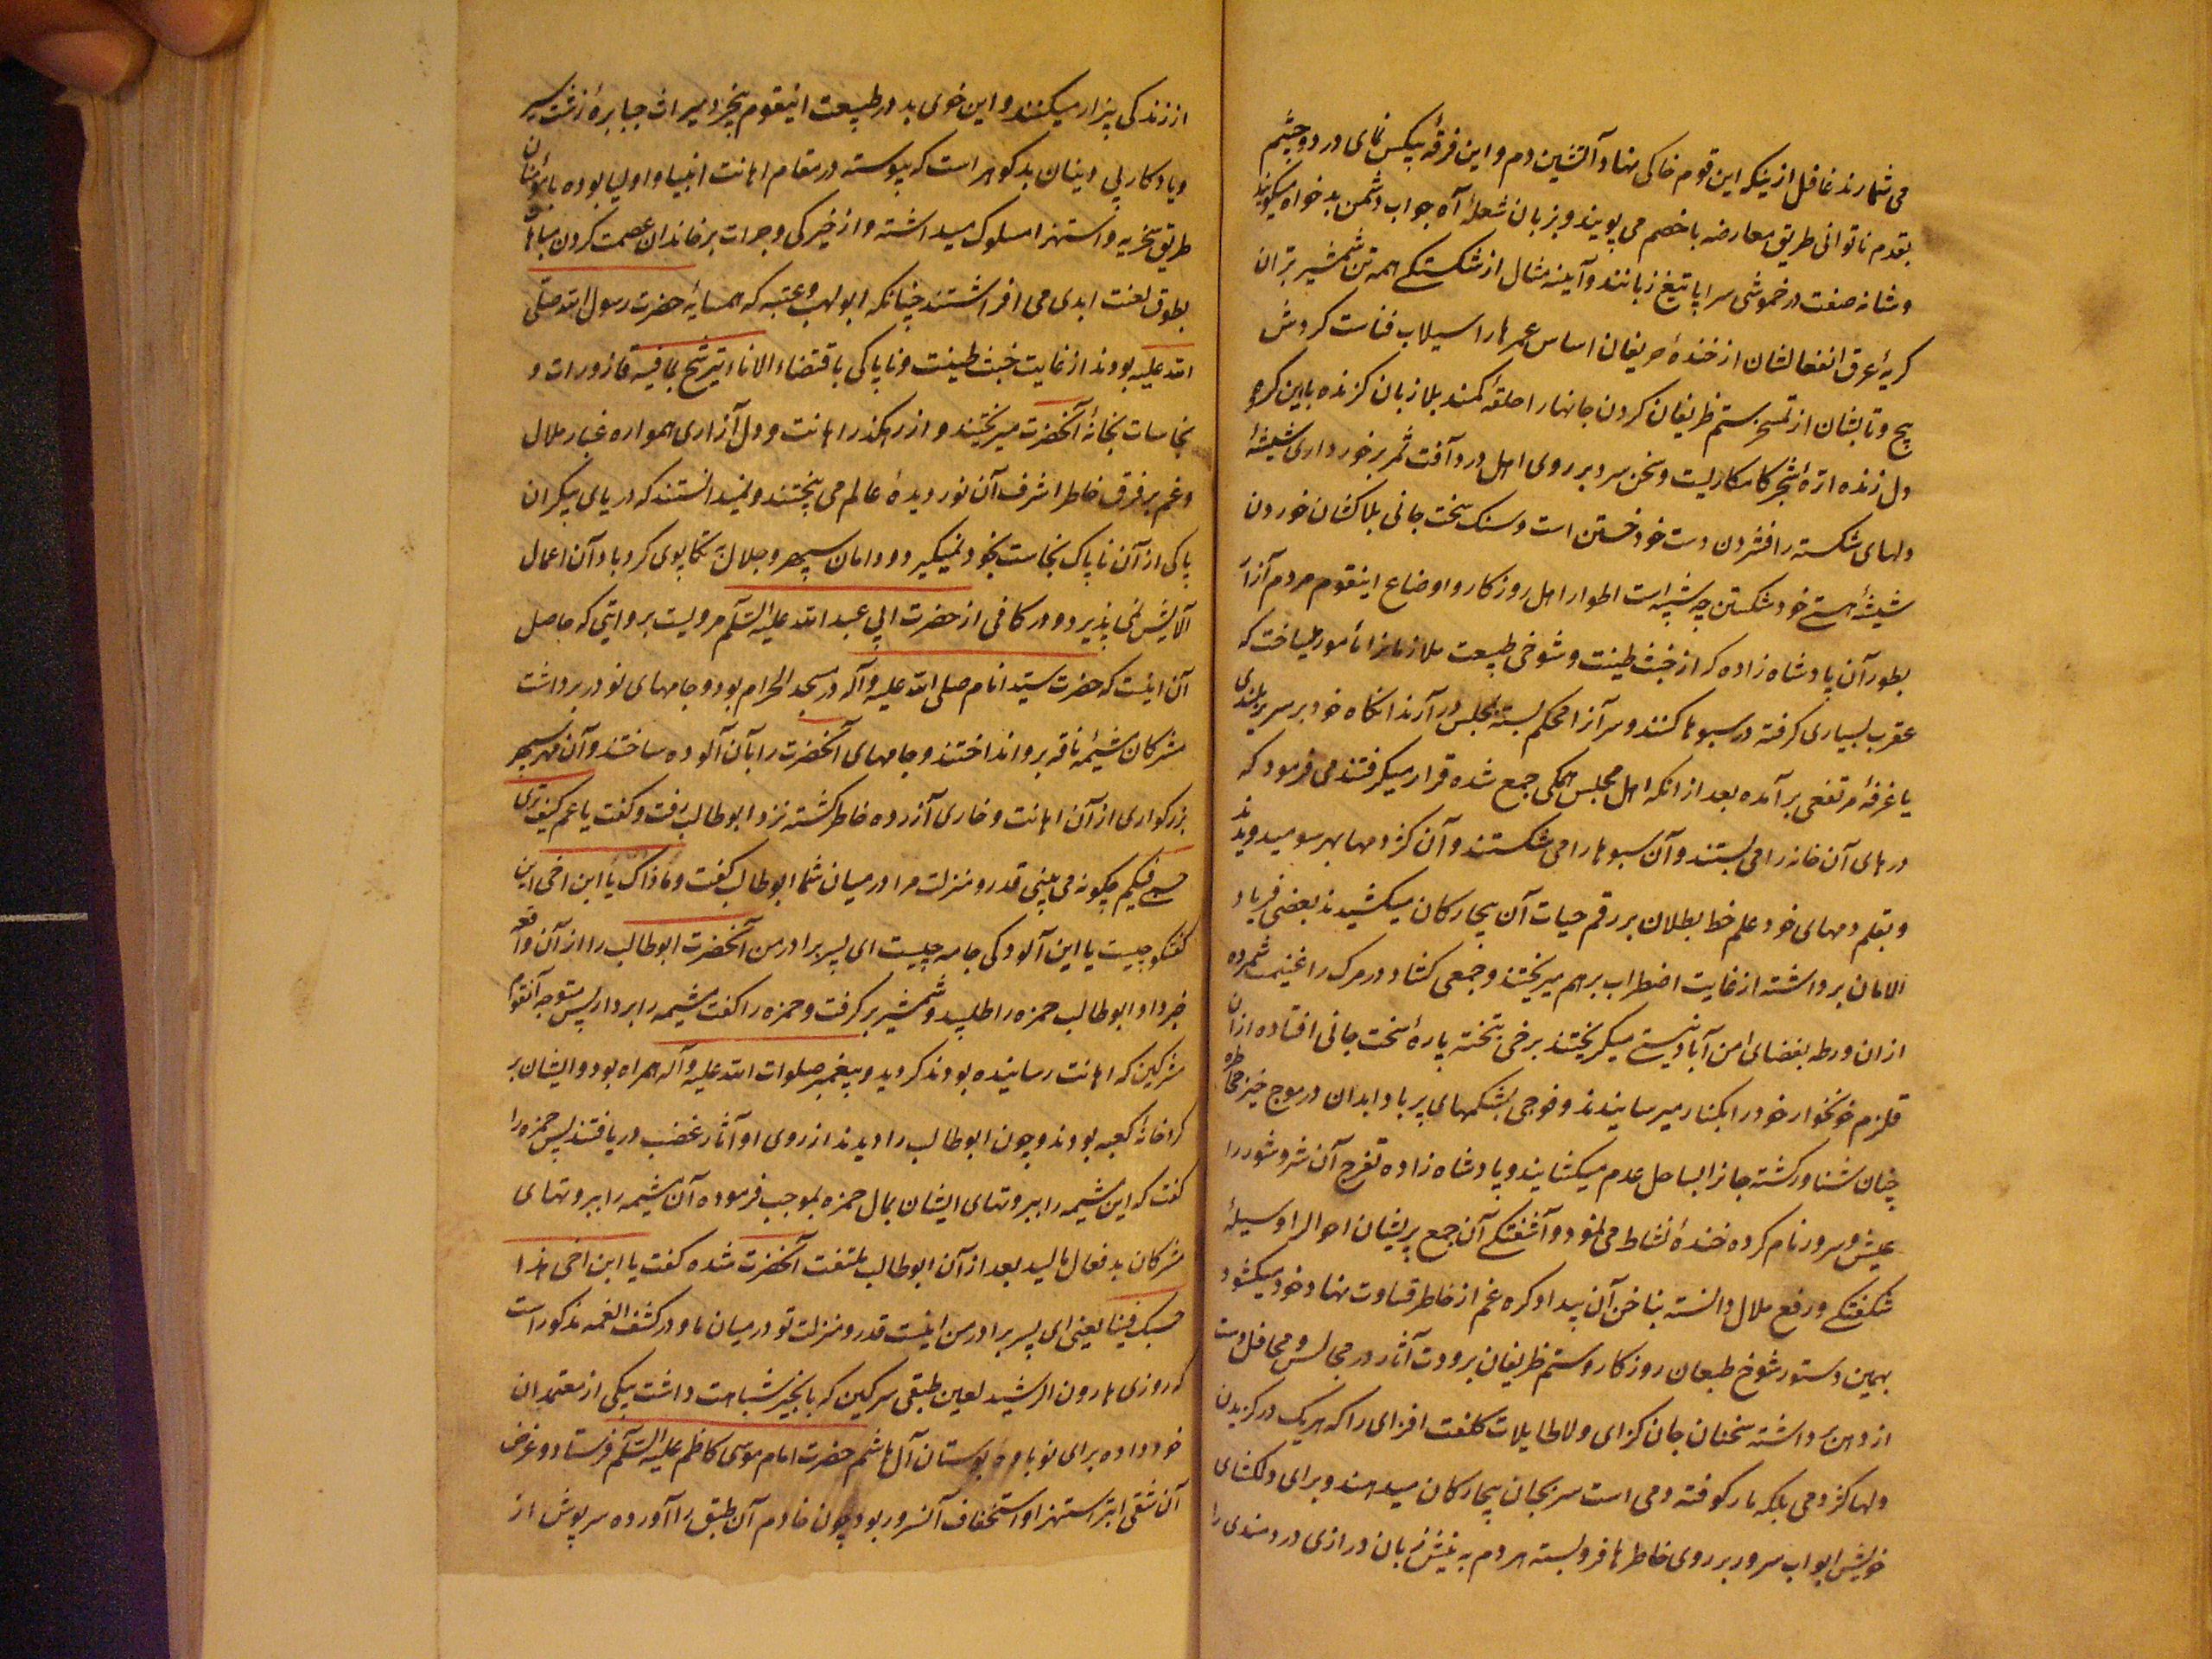 می شمارند غافل ازینکه این قوم خاکی نهاد آتشین دم و این فرقهٔ بیکس نمای در دو چشم
بقدم ناتوانی طریق معارضه با خصم می پویند و بزبان شعلهٔ آه جواب دشمن بدخواه میگویند
و شانه صفت در خموشی سراپا تیغ زبانند و آینه مثال از شکستگی همه تن شمشیر بران
گریهٔ عرق انفعالشان از خندهٔ حریفان اساس عمرها را سیلاب فناست گردش
پیچ و تابشان از تمسخر ستم ظریفان گردن جانها را حلقهٔ کمند بلا زبان گزنده باین گروه
دل زنده ارّهٔ شجر کامکاریست و سخن سرد بر روی اهل درد آفت ثمر برخورداری شیشهٔ
دلهای شکسته را فشردن دست خود خستن است و سنگ سخت جانی بلاکشان خوردن
شیشهٔ هستی خود شکستن چه شبیه است اطوار اهل روزگار و اوضاع اینقوم مردم آزار
بطور آن پادشاه زاده که از خبث طینت و شوخی طبیعت ملازمانرا مأمور میساخت که
عقرب بسیاری گرفته در سبوها کنند و سر آنرا محکم بسته بمجلس در آرند آنگاه خود بر سریر بلندی
یا غرفهٔ مرتفعی برآمده بعد از انکه اهل مجلس همگی جمع شده قرار میگرفتند می فرمود که
درهای آن خانه را می بستند و آن سبوها را می شکستند و آن کژدمها بهر سو میدویدند
و بقلم دمهای خود علم خط بطلان بر رقم حیات آن بیچارگان میکشیدند بعضی فریاد
الامان برداشته از غایت اضطراب برهم میریختند و جمعی گشاد در مرگ را غنیمت شمرده
ازان ورطه بفضای امن آباد نیستی میگریختند برخی بتخته پارهٔ سخت جانی افتاده ازان
قلزم خونخوار خود را بکنار میرسانیدند و فوجی بشکمهای پر باد ابدان در موج خیز مخاطره
چنان شناور گشته جانرا بساحل عدم میکشانیدند و پادشاه زاده تفرج آن شر و شور را
عیش و سرور نام کرده خندهٔ نشاط می نمود و آشفتگی آن جمع پریشان احوال را وسیلهٔ
شکفتگی و رفع ملال دانسته بناخن آن بیداد گره غم از خاطر قساوت نهاد خود میگشود
بهمین دستور شوخ طبعان روزگار و ستم ظریفان برودت آثار در مجالس و محافل دست
از دهن برداشته سخنان جان گزای و لاطایلات کلفت افزای را که هر یک در گزیدن
دلها کژدمی بلکه مار کوفته دمی است سر بجان بیچارگان میدهند و برای دلگشای
خویش ابواب سرور بر روی خاطرها فرو بسته هر دم به نیش زبان درازی دردمندی را
از زندگی بیزار میکنند و این خوی بد در طبیعت اینقوم بیخرد میراث جبابرهٔ زشت سیر
و یادگار بی دینان بدگوهر است که پیوسته در مقام اهانت انبیا و اولیا بوده با مؤمنان
طریق سخریه و استهزا مسلوک میداشته و از خیرگی و جرات بر خاندان عصمت گردن مباهات
بطوق لعنت ابدی می افراشتند چنانکه ابولهب و عتبه که همسایهٔ حضرت رسول الله صلی
الله علیه بودند از غایت خبث طینت و ناپاکی باقتضاء الاناء یترشح بما فیه قاذورات و
نجاسات بخانهٔ آنحضرت میریختند و از رهگذر اهانت و دل آزاری همواره غبار ملال
و غم بر فرق خاطر اشرف آن نور دیدهٔ عالم می بیختند و نمیدانستند که دریای بیکران
پاکی از آن ناپاک نجاست بخود نمیگیرد و دامان سپهر و جلال بتکاپوی گردباد آن اعمال
آلایش نمی پذیرد و در کافی از حضرت ابی عبد الله علیه السلام مرویست بروایتی که حاصل
آن اینست که حضرت سید انام صلی الله علیه و آله در مسجد الحرام بود و جامهای نو در بر داشت
مشرکان مشیمهٔ ناقه برو انداختند و جامهای آنحضرت را بآن آلوده ساختند و آن مهر سپهر
بزرگواری از آن اهانت و خاری آزرده خاطر گشته نزد ابوطالب رفت و گفت یا عم کیف تری
حسبی فیکم چگونه می بینی قدر و منزلت مرا در میان شما ابوطالب گفت و ما ذاک یا ابن اخی این
گفتگو چیست یا این آلودگی جامه چیست ای پسر برادر من آنحضرت ابوطالب را از آن واقعه
خبر داد ابوطالب حمزه را طلبید و شمشیر بر گرفت و حمزه را گفت مشیمه را بردار پس متوجه آنقوم
مشرکین که اهانت رسانیده بودند گردید و پیغمبر صلوات الله علیه و آله همراه بود و ایشان بر
گرد خانهٔ کعبه بودند و چون ابوطالب را دیدند از روی او آثار غضب دریافتند پس حمزه را
گفت که این مشیمه را ببروتهای ایشان بمال حمزه بموجب فرموده آن مشیمه را ببروتهای
مشرکان بدفعال مالید بعد از آن ابوطالب ملتفت آنحضرت شده گفت یا ابن اخی هذا
حسبک فینا یعنی ای پسر برادر من اینست قدر و منزلت تو در میان ما و در کشف الغمه مذکور است
که روزی هارون الرشید لعین طبقی سرگین که بانجیر شباهت داشت بیکی از معتمدان
خود داده برای نوباوه بوستان آل هاشم حضرت امام موسی کاظم علیه السلام فرستاد و غرض
آن شقی ابتر استهزا و استخفاف آنسرور بود چون خادم آن طبق را آورده سرپوش از